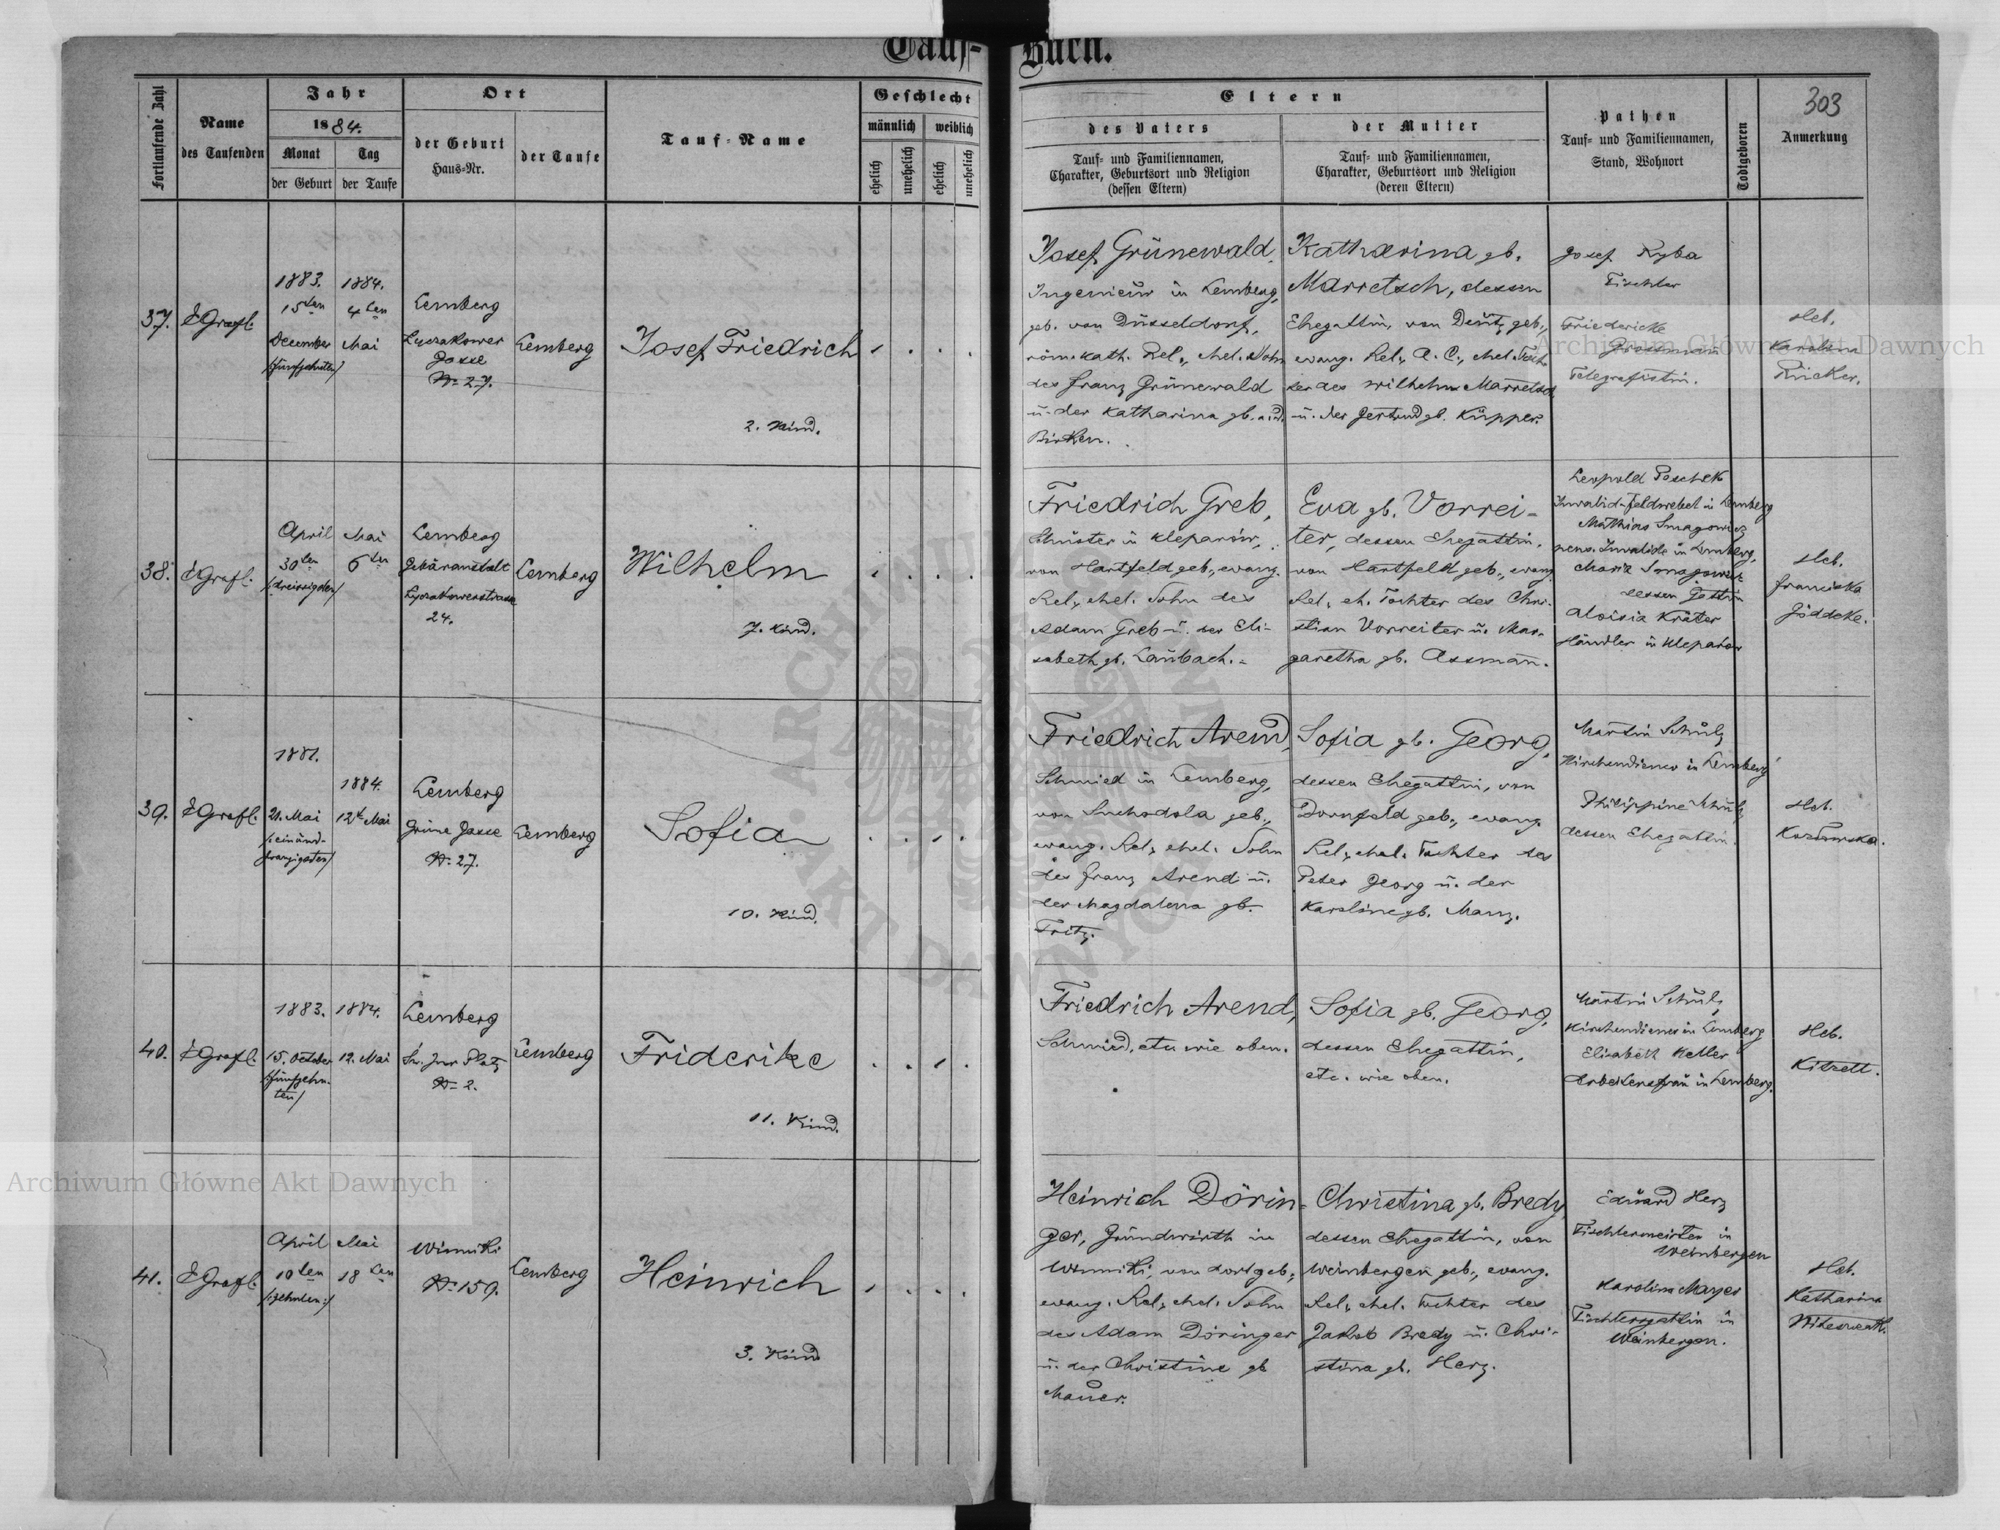 Tauf-Buch.
Fortlaufende Zahl
Name
des Taufenden
Jahr
1884.
Monat
Tag
der Geburt
der Taufe
Ort
der Geburt
Haus-Nr.
der Taufe
Tauf-Name
Geschlecht
männlich
weiblich
ehelich
unehelich
ehelich
unehelich
Eltern
des Vaters
Tauf- und Familiennamen,
Charakter, Geburtsort und Religion
(dessen Eltern)
der Mutter
Tauf- und Familiennamen,
Charakter, Geburtsort und Religion
(deren Eltern)
Pathen
Tauf- und Familiennamen,
Stand, Wohnort
Todtgeboren
303
Anmerkung
37.
EGrafl.
1883.
15ten
December
/fünfzehnten/
1884.
4ten
Mai
Lemberg
Lyczakower
Gasse
No 27.
Lemberg
Josef Friedrich
2. Kind.
Josef Grünewald,
Ingenieur in Lemberg,
geb. von Düsseldorf,
röm. kath. Rel., ehel. Sohn
des Franz Grünewald
u. der Katharina gb. a. d.
Birken.
Katharina gb.
Marretsch, dessen
Ehegattin, von Deutz geb.,
evang. Rel., A. C., ehel. Toch-
ter des Wilhelm Marretsch
u. der Gertrud gb. Küpper.
Josef Ryba
Tischler
Friedericke
Grossmann
Telegrafistin.
Heb.
Karolina
Rücker.
38.
EGrafl.
April
30ten
/dreissigsten/
Mai
6ten
Lemberg
Gebäranstalt
Lyczakowerstrasse
24.
Lemberg
Wilhelm
7. Kind.
Friedrich Greb,
Schuster in Kleparów,
von Hartfeld geb., evang.
Rel., ehel. Sohn des
Adam Greb u. der Eli-
sabeth gb. Laubach.
Eva gb. Vorrei-
ter, dessen Ehegattin,
von Hartfeld geb., evang.
Rel., eh. Tochter des Chri-
stian Vorreiter u. Mar-
garetha gb. Assman.
Leopold Peschek
Invalid-Feldwebel in Lemberg
Mathias Smagowicz
pens. Invalide in Lemberg,
Maria Smagowicz
dessen Gattin
Aloisia Kräter
Händler in Kleparow
Heb.
Franciska
Göddeke.
39.
EGrafl.
1881.
21. Mai
/einund-
zwanzigsten/
1884.
12t Mai
Lemberg
Grüne Gasse
No 27.
Lemberg
Sofia
10. Kind.
Friedrich Arend,
Schmied in Lemberg,
von Suchodola geb.,
evang. Rel., ehel. Sohn
des Franz Arend u.
der Magdalena gb.
Fritz.
Sofia gb. Georg,
dessen Ehegattin, von
Dornfeld geb., evang.
Rel., ehel. Tochter des
Peter Georg u. der
Karoline gb. Manz.
Martin Schulz
Kirchendiener in Lemberg
Philippine Schulz
dessen Ehegattin.
Heb.
40.
EGrafl.
1883.
15. October
/fünfzehn-
ten/
1884.
12. Mai
Lemberg
Sw. Jur Platz
No 2.
Lemberg
Friderike
11. Kind.
Friedrich Arend,
Schmied, etc wie oben.
Sofia gb. Georg,
dessen Ehegattin,
etc. wie oben.
Martin Schulz,
Kirchendiener in Lemberg
Elisabeth Keller
Arbeitersfrau in Lemberg.
Heb.
41.
EGrafl.
April
10ten
/:zehnten:/
Mai
18ten
Winniki
No 159.
Lemberg
Heinrich
3. Kind
Heinrich Dörin-
ger, Grundwirth in
Winniki, von dort geb.,
evang. Rel., ehel. Sohn
des Adam Döringer
u. der Christine gb
Mauer.
Christina gb. Bredy
dessen Ehegattin, von
Weinbergen geb., evang.
Rel., ehel. Tochter des
Jakob Bredy u. Chri-
stina gb. Herz.
Eduard Herz
Tischlermeister in
Weinbergen
Karolina Mayer
Tischlersgattin in
Weinbergen.
Heb.
Katharina
Archiwum Główne Akt Dawnych
Archiwum Główne Akt Dawnych